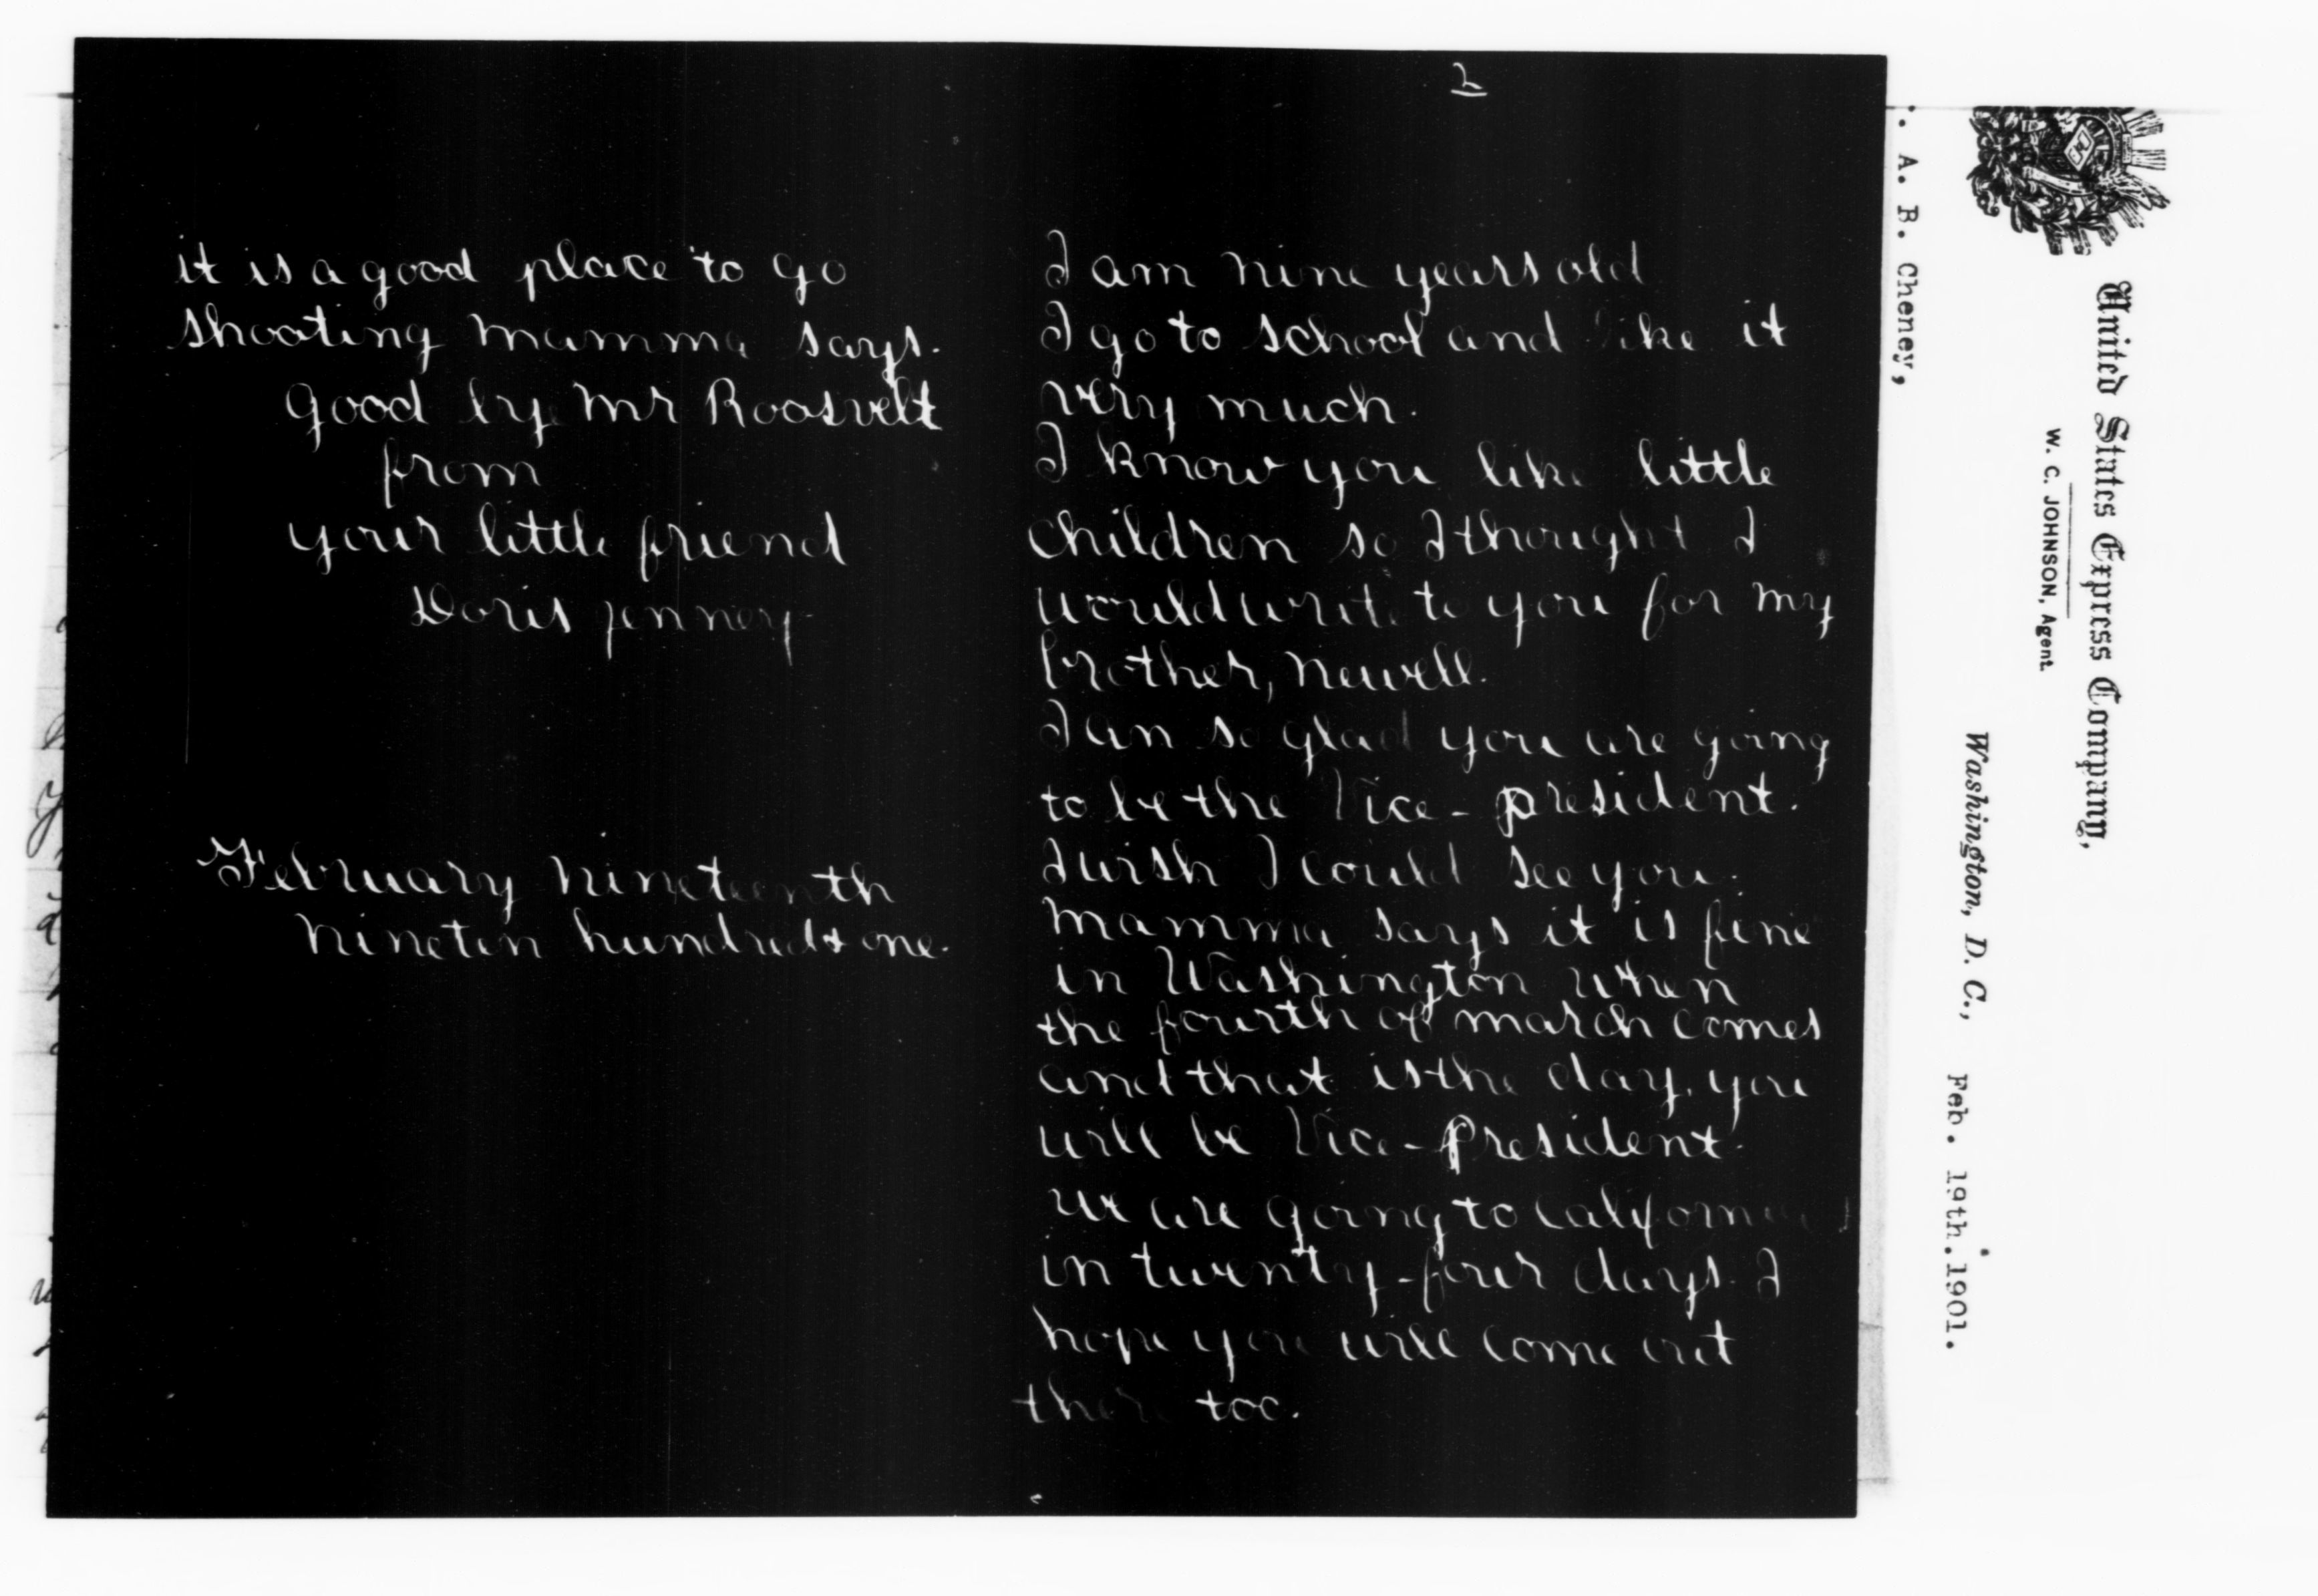 2
I am nine years old
I go to school and like it
very much.
I know you like little
children so I thought I
would write to you for my
brother, newell.
I am so glad you are going
to be the Vice-president.
I wish I could see you.
mamma says it is fine
in Washington when
the fourth of march comes
and that is the day, you
will be Vice-President.
we are going to california
in twenty-four days. I
hope you will come out
there too.
it is a good place to go
shooting mamma says.
good by mr Roosvelt
from
your little friend
Doris jenney
February nineteenth
nineten hundred & one.
United States Express Company,
W. C. JOHNSON, Agent.
Washington, D. C., Feb. 19th. 1901.
. A. B. Cheney,